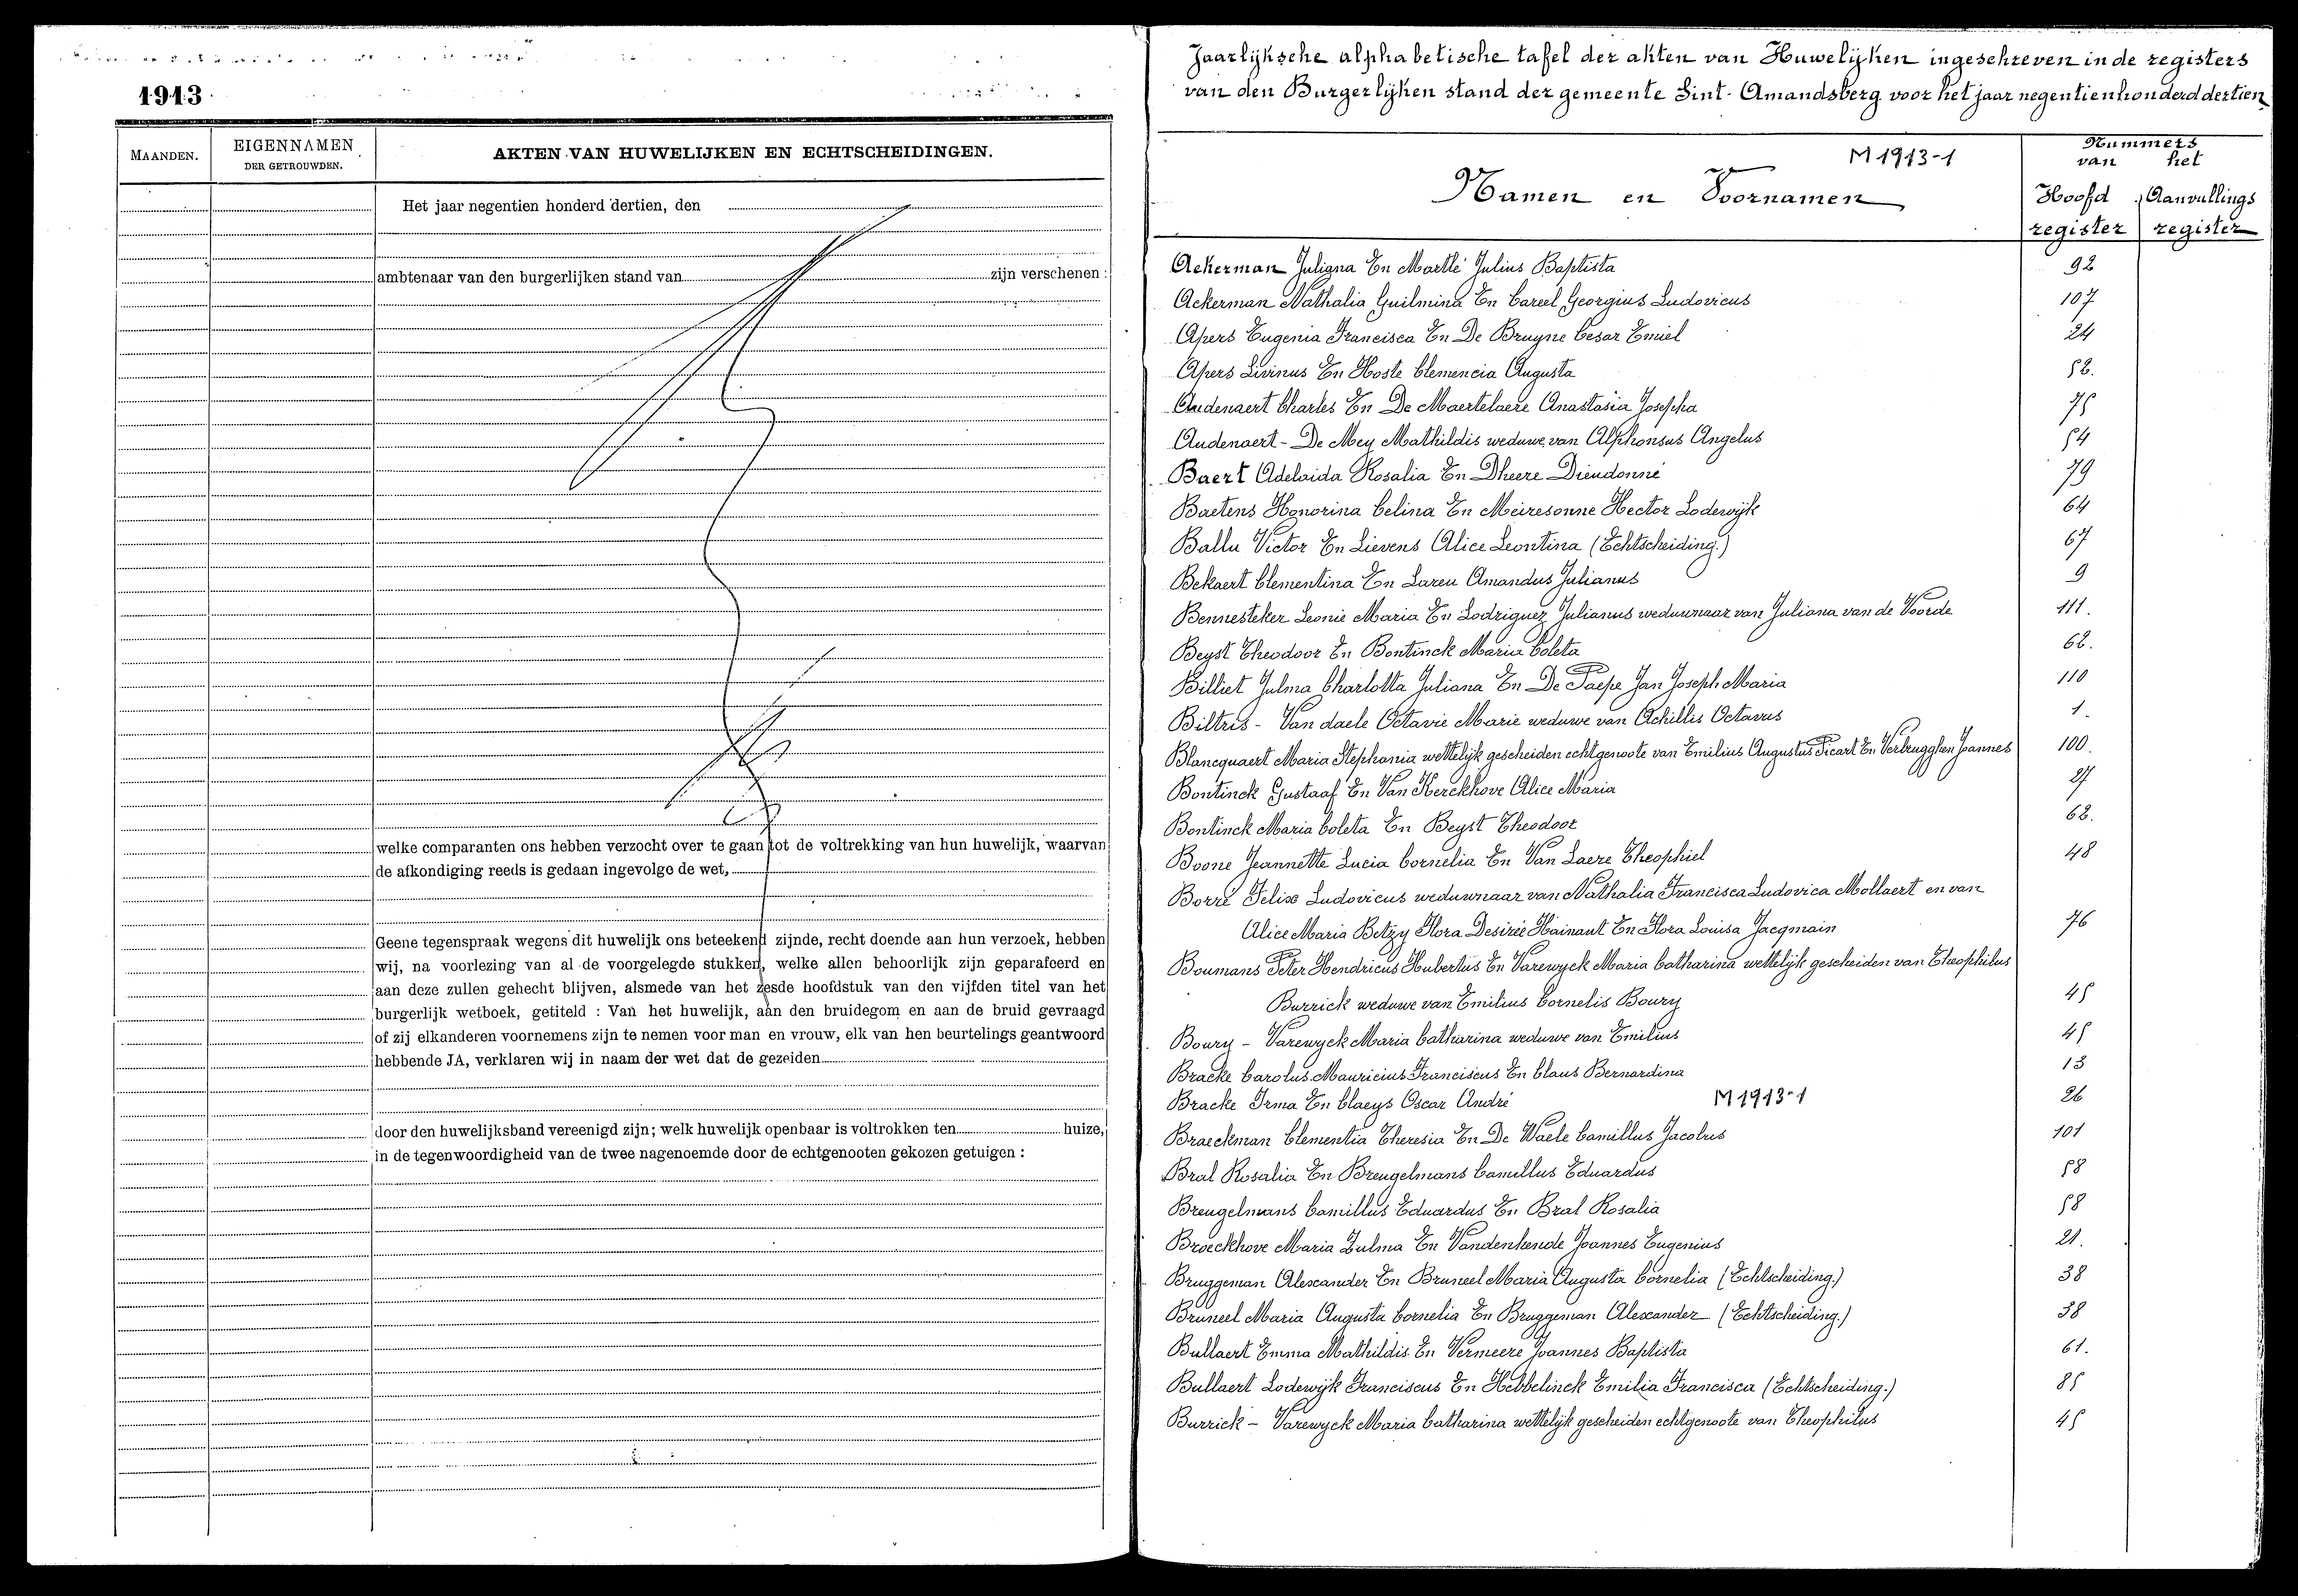 1913
MAANDEN.
EIGENNAMEN
DER GETROUWDEN.
AKTEN VAN HUWELIJKEN EN ECHTSCHEIDINGEN.
Het jaar negentien honderd dertien, den
ambtenaar van den burgerlijken stand van zijn verschenen :
welke comparanten ons hebben verzocht over te gaan tot de voltrekking van hun huwelijk, waarvan
de afkondiging reeds is gedaan ingevolge de wet,
Geene tegenspraak wegens dit huwelijk ons beteekend zijnde, recht doende aan hun verzoek, hebben
wij, na voorlezing van al de voorgelegde stukken, welke allen behoorlijk zijn geparafeerd en
aan deze zullen gehecht blijven, alsmede van het zesde hoofdstuk van den vijfden titel van het
burgerlijk wetboek, getiteld : Van het huwelijk, aan den bruidegom en aan de bruid gevraagd
of zij elkanderen voornemens zijn te nemen voor man en vrouw, elk van hen beurtelings geantwoord
hebbende JA, verklaren wij in naam der wet dat de gezeiden
door den huwelijksband vereenigd zijn; welk huwelijk openbaar is voltrokken ten huize,
in de tegenwoordigheid van de twee nagenoemde door de echtgenooten gekozen getuigen :
Jaarlijksche alphabetische tafel der akten van Huwelijken ingeschreven in de registers
van den Burgerlijken stand der gemeente Sint-Amandsberg voor het jaar negentienhonderd dertien
M 1913-1
Namen en Voornamen
Nummers
van het
Hoofd Aanvullings
register register
Ackerman Juligna En Martlé Julius Baptista 92
Ackerman Nathalia Guilmina En Careel Georgius Ludovicus 107
Apers Eugenia Francisca En De Bruyne Cesar Emiel 24
Apers Livinus En Hoste Clemencia Augusta 52.
Audenaert Charles En De Maertelaere Anastasia Josepha 75
Audenaert - De Mey Mathildis weduwe van Alphonsus Angelus 54
Baert Adelaida Rosalia En Dheere Dieudonné 79
Baetens Honorina Celina En Meiresonne Hector Lodewijk 64
Ballu Victor En Lievens Alice Leontina (Echtscheiding.) 67
Bekaert Clementina En Lareu Amandus Julianus 9
Bennesteker Leonie Maria En Lodriguez Julianus weduwnaar van Juliana van de Voorde 111.
Beyst Theodoor En Bontinck Maria Coleta 62.
Billiet Julma Charlotta Juliana En De Paepe Jan Joseph Maria 110
Biltris - Van daele Octavie Marie weduwe van Achillis Octavus 1.
Blancquaert Maria Stephania wettelijk gescheiden echtgenoote van Emilius Augustus Picart En Verbrugghen Joannes 100.
Bontinck Gustaaf En Van Kerckhove Alice Maria 27
Bontinck Maria Coleta En Beyst Theodoor 62.
Boone Jeannette Lucia Cornelia En Van Laere Theophiel 48
Borré Felix Ludovicus weduwnaar van Nathalia Francisca Ludovica Mollaert en van
Alice Maria Betzy Flora Desirée Hainaut En Flora Louisa Jacqmain 76
Boumans Peter Hendricus Hubertus En Varewyck Maria Catharina wettelijk gescheiden van Theophilus
Burrick weduwe van Emilius Cornelis Boury 45
Boury - Varewyck Maria Catharina weduwe van Emilius 45
Bracke Carolus Mauricius Franciscus En Claus Bernardina 13
Bracke Irma En Claeys Oscar André M 1913-1 26
Braeckman Clementia Theresia En De Waele Camillus Jacobus 101
Bral Rosalia En Breugelmans Camillus Eduardus 58
Breugelmans Camillus Eduardus En Bral Rosalia 58
Broeckhove Maria Zulma En Vandenhende Joannes Eugenius 21.
Bruggeman Alexander En Bruneel Maria Augusta Cornelia (Echtscheiding.) 38
Bruneel Maria Augusta Cornelia En Bruggeman Alexander (Echtscheiding.) 38
Bullaert Emma Mathildis En Vermeere Joannes Baptista 61.
Bullaert Lodewijk Franciscus En Hebbelinck Emilia Francisca (Echtscheiding.) 85
Burrick - Varewyck Maria Catharina wettelijk gescheiden echtgenoote van Theophilus 45